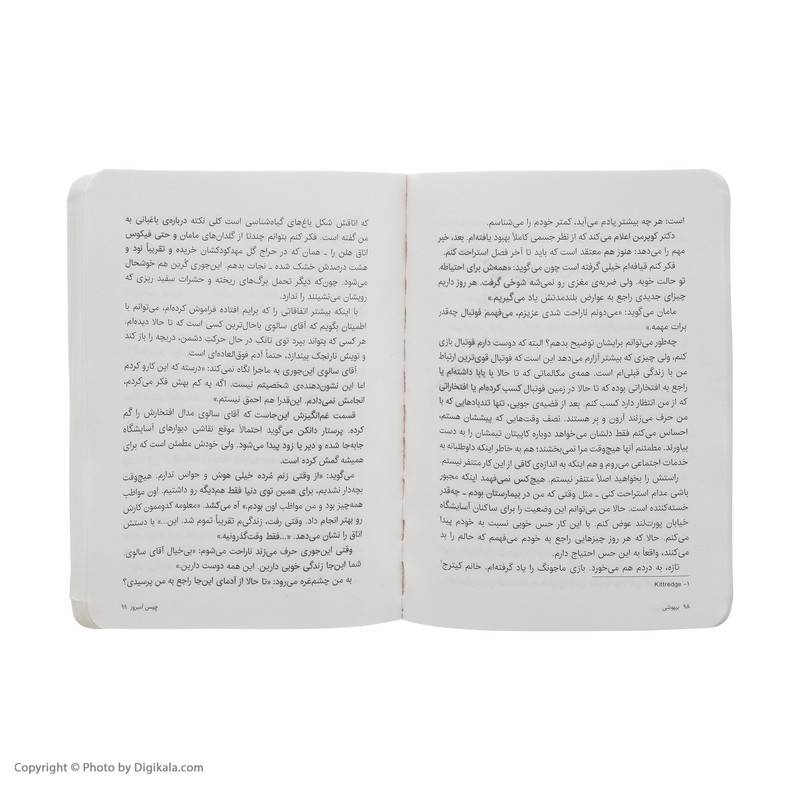 است: هر چه بیشتر یادم می‌آید، کمتر خودم را می‌شناسم.
دکتر کوپرمن اعلام می‌کند که از نظر جسمی کاملاً بهبود یافته‌ام. بعد، خبر
مهم را می‌دهد: هنوز هم معتقد است که باید تا آخر فصل استراحت کنم.
فکر کنم قیافه‌ام خیلی گرفته است چون می‌گوید: «همه‌ش برای احتیاطه.
تو حالت خوبه. ولی ضربه‌ی مغزی رو نمی‌شه شوخی گرفت. هر روز داریم
چیزای جدیدی راجع به عوارض بلندمدتش یاد می‌گیریم.»
مامان می‌گوید: «می‌دونم ناراحت شدی عزیزم، می‌فهمم فوتبال چه‌قدر
برات مهمه.»
چه‌طور می‌توانم برایشان توضیح بدهم؟ البته که دوست دارم فوتبال بازی
کنم، ولی چیزی که بیشتر آزارم می‌دهد این است که فوتبال قوی‌ترین ارتباط
من با زندگی قبلی‌ام است. همه‌ی مکالماتی که تا حالا با پاپا داشته‌ام یا
راجع به افتخاراتی بوده که تا حالا در زمین فوتبال کسب کرده‌ام یا افتخاراتی
که از من انتظار دارد کسب کنم. بعد از قضیه‌ی جویی، تنها تندبادهایی که با
من حرف می‌زنند آرون و بِر هستند. نصف وقت‌هایی که پیششان هستم،
احساس می‌کنم فقط دلشان می‌خواهد دوباره کاپیتان تیمشان را به دست
بیاورند. مطمئنم آنها هیچ‌وقت مرا نمی‌بخشند؛ هم به خاطر اینکه داوطلبانه به
خدمات اجتماعی می‌روم و هم اینکه به اندازه‌ی کافی از این کار متنفر نیستم.
راستش را بخواهید اصلاً متنفر نیستم. هیچ‌کس نمی‌فهمد اینکه مجبور
باشی مدام استراحت کنی ـ مثل وقتی که من در بیمارستان بودم ـ چه‌قدر
خسته‌کننده است. حالا من می‌توانم این وضعیت را برای ساکنان آسایشگاه
خیابان پورت‌لند عوض کنم. با این کار حس خوبی نسبت به خودم پیدا
می‌کنم. حالا که هر روز چیزهایی راجع به خودم می‌فهمم که حالم را بد
می‌کنند، واقعاً به این حس احتیاج دارم.
تازه، به دردم هم می‌خورد. بازی ماجونگ را یاد گرفته‌ام. خانم کیترج۱
۱- Kittredge
۹۸ بیهوشی
که اتاقش شکل باغ‌های گیاه‌شناسی است کلی نکته درباره‌ی باغبانی به
من گفته است. فکر کنم بتوانم چندتا از گلدان‌های مامان و حتی فیکوس
اتاق هلن را ـ همان که در حراج گل مهدکودکشان خریده و تقریباً نود و
هشت درصدش خشک شده ـ نجات بدهم. این‌جوری کُرین هم خوشحال
می‌شود. چون‌که دیگر تحمل برگ‌های ریخته و حشرات سفید ریزی که
رویشان می‌نشینند را ندارد.
با اینکه بیشتر اتفاقاتی را که برایم افتاده فراموش کرده‌ام، می‌توانم با
اطمینان بگویم که آقای سالوی باحال‌ترین کسی است که تا حالا دیده‌ام.
هر کسی که بتواند بپرد توی تانکِ در حال حرکتِ دشمن، دریچه را باز کند
و تویش نارنجک بیندازد، حتماً آدم فوق‌العاده‌ای است.
آقای سالوی این‌جوری به ماجرا نگاه نمی‌کند: «درسته که این کارو کردم
اما این نشون‌دهنده‌ی شخصیتم نیست. اگه یه کم بهش فکر می‌کردم،
انجامش نمی‌دادم. این‌قدرا هم احمق نیستم.»
قسمت غم‌انگیزش این‌جاست که آقای سالوی مدال افتخارش را گم
کرده. پرستار دانکن می‌گوید احتمالاً موقع نقاشی دیوارهای آسایشگاه
جابه‌جا شده و دیر یا زود پیدا می‌شود. ولی خودش مطمئن است که برای
همیشه گمش کرده است.
می‌گوید: «از وقتی زنم مُرده خیلی هوش و حواس ندارم. هیچ‌وقت
بچه‌دار نشدیم، برای همین توی دنیا فقط هم‌دیگه رو داشتیم. اون مواظب
همه‌چیز بود و من مواظب اون بودم.» آه می‌کشد. «معلومه کدوممون کارش
رو بهتر انجام داد. وقتی رفت، زندگی‌م تقریباً تموم شد. این...» با دستش
اتاق را نشان می‌دهد. «...فقط وقت‌گذرونیه.»
وقتی این‌جوری حرف می‌زند ناراحت می‌شوم: «بی‌خیال آقای سالوی.
شما این‌جا زندگی خوبی دارین. این همه دوست دارین.»
به من چشم‌غره می‌رود: «تا حالا از آدمای این‌جا راجع به من پرسیدی؟
چیس امبروز ۹۹
Copyright © Photo by Digikala.com